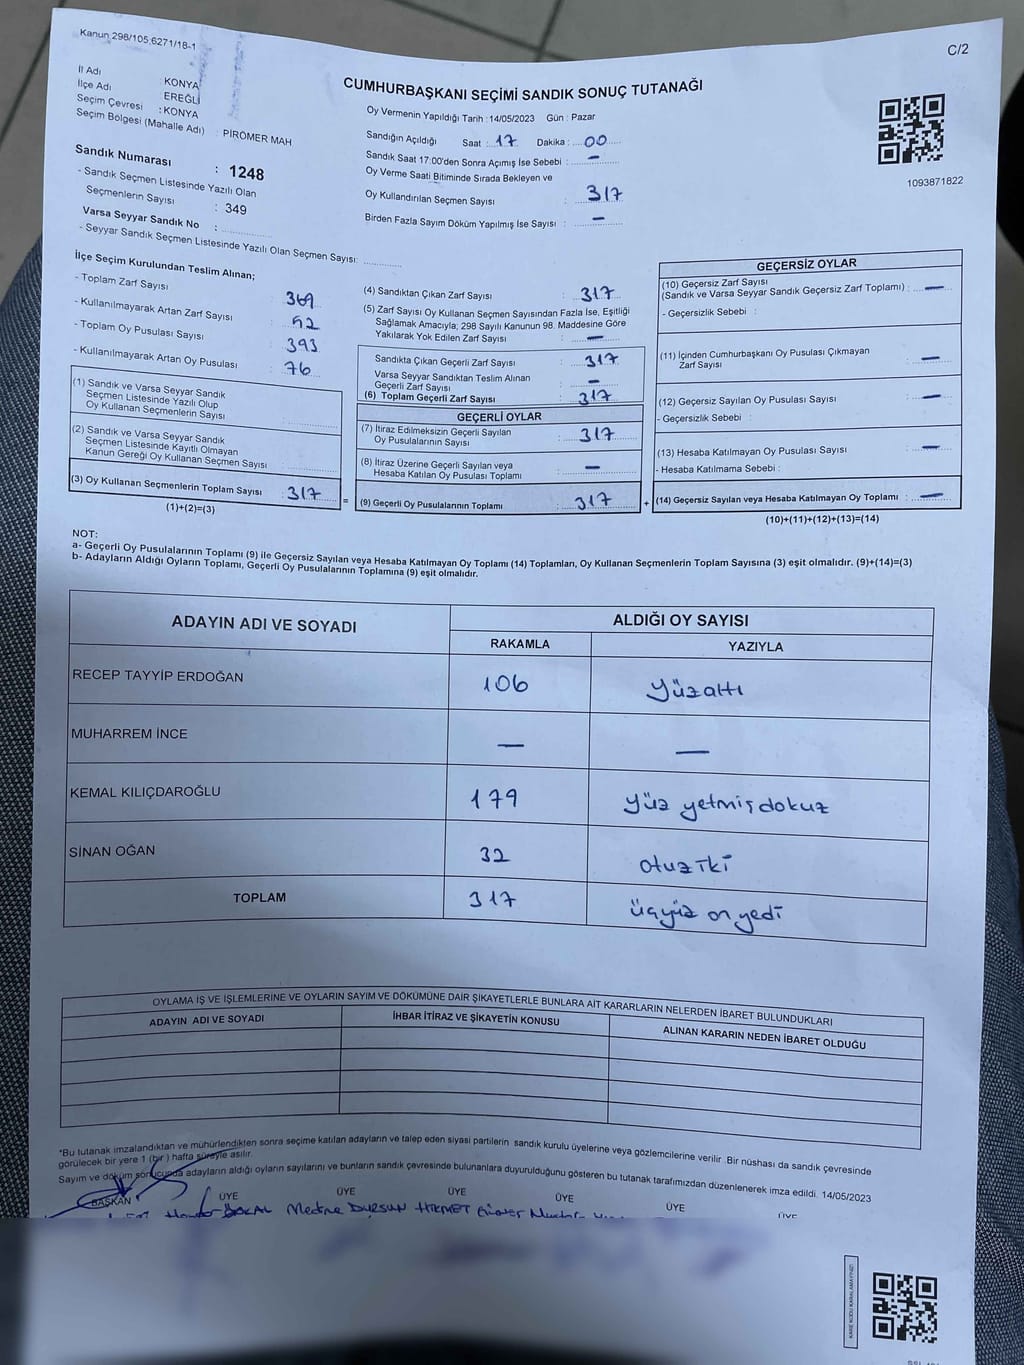 Kanun 298/105,6271/18-1
C/2
İl Adı : KONYA
İlçe Adı : EREĞLİ
Seçim Çevresi : KONYA
Seçim Bölgesi (Mahalle Adı) : PİRÖMER MAH
CUMHURBAŞKANI SEÇİMİ SANDIK SONUÇ TUTANAĞI
Oy Vermenin Yapıldığı Tarih : 14/05/2023 Gün : Pazar
Sandığın Açıldığı Saat : 17 Dakika : 00
Sandık Saat 17:00'den Sonra Açımış İse Sebebi : —
Oy Verme Saati Bitiminde Sırada Bekleyen ve
Oy Kullandırılan Seçmen Sayısı : 317
Birden Fazla Sayım Döküm Yapılmış İse Sayısı : —
1093871822
Sandık Numarası : 1248
- Sandık Seçmen Listesinde Yazılı Olan
Seçmenlerin Sayısı : 349
Varsa Seyyar Sandık No :
- Seyyar Sandık Seçmen Listesinde Yazılı Olan Seçmen Sayısı:
İlçe Seçim Kurulundan Teslim Alınan;
- Toplam Zarf Sayısı : 369
- Kullanılmayarak Artan Zarf Sayısı : 52
- Toplam Oy Pusulası Sayısı : 393
- Kullanılmayarak Artan Oy Pusulası : 76
(1) Sandık ve Varsa Seyyar Sandık
Seçmen Listesinde Yazılı Olup
Oy Kullanan Seçmenlerin Sayısı :
(2) Sandık ve Varsa Seyyar Sandık
Seçmen Listesinde Kayıtlı Olmayan
Kanun Gereği Oy Kullanan Seçmen Sayısı :
(3) Oy Kullanan Seçmenlerin Toplam Sayısı : 317
(1)+(2)=(3)
(4) Sandıktan Çıkan Zarf Sayısı : 317
(5) Zarf Sayısı Oy Kullanan Seçmen Sayısından Fazla İse, Eşitliği
Sağlamak Amacıyla; 298 Sayılı Kanunun 98. Maddesine Göre
Yakılarak Yok Edilen Zarf Sayısı : —
Sandıkta Çıkan Geçerli Zarf Sayısı : 317
Varsa Seyyar Sandıktan Teslim Alınan
Geçerli Zarf Sayısı : —
(6) Toplam Geçerli Zarf Sayısı : 317
GEÇERLİ OYLAR
(7) İtiraz Edilmeksizin Geçerli Sayılan
Oy Pusulalarının Sayısı : 317
(8) İtiraz Üzerine Geçerli Sayılan veya
Hesaba Katılan Oy Pusulası Toplamı : —
= (9) Geçerli Oy Pusulalarının Toplamı : 317 +
GEÇERSİZ OYLAR
(10) Geçersiz Zarf Sayısı
(Sandık ve Varsa Seyyar Sandık Geçersiz Zarf Toplamı) : —
- Geçersizlik Sebebi :
(11) İçinden Cumhurbaşkanı Oy Pusulası Çıkmayan
Zarf Sayısı : —
(12) Geçersiz Sayılan Oy Pusulası Sayısı : —
- Geçersizlik Sebebi :
(13) Hesaba Katılmayan Oy Pusulası Sayısı : —
- Hesaba Katılmama Sebebi :
(14) Geçersiz Sayılan veya Hesaba Katılmayan Oy Toplamı : —
(10)+(11)+(12)+(13)=(14)
NOT:
a- Geçerli Oy Pusulalarının Toplamı (9) ile Geçersiz Sayılan veya Hesaba Katılmayan Oy Toplamı (14) Toplamları, Oy Kullanan Seçmenlerin Toplam Sayısına (3) eşit olmalıdır. (9)+(14)=(3)
b- Adayların Aldığı Oyların Toplamı, Geçerli Oy Pusulalarının Toplamına (9) eşit olmalıdır.
ADAYIN ADI VE SOYADI ALDIĞI OY SAYISI
RAKAMLA YAZIYLA
RECEP TAYYİP ERDOĞAN 106 Yüzaltı
MUHARREM İNCE — —
KEMAL KILIÇDAROĞLU 179 Yüz yetmişdokuz
SİNAN OĞAN 32 otuziki
TOPLAM 317 üçyüz on yedi
OYLAMA İŞ VE İŞLEMLERİNE VE OYLARIN SAYIM VE DÖKÜMÜNE DAİR ŞİKAYETLERLE BUNLARA AİT KARARLARIN NELERDEN İBARET BULUNDUKLARI
ADAYIN ADI VE SOYADI İHBAR İTİRAZ VE ŞİKAYETİN KONUSU ALINAN KARARIN NEDEN İBARET OLDUĞU
*Bu tutanak imzalandıktan ve mühürlendikten sonra seçime katılan adayların ve talep eden siyasi partilerin sandık kurulu üyelerine veya gözlemcilerine verilir. Bir nüshası da sandık çevresinde
görülecek bir yere 1 (bir) hafta süreyle asılır.
Sayım ve döküm sonucunda adayların aldığı oyların sayılarını ve bunların sandık çevresinde bulunanlara duyurulduğunu gösteren bu tutanak tarafımızdan düzenlenerek imza edildi. 14/05/2023
BAŞKAN ÜYE ÜYE ÜYE ÜYE ÜYE ÜYE
Medine DURSUN HİKMET
KARE KODU KARALAMAYINIZ!